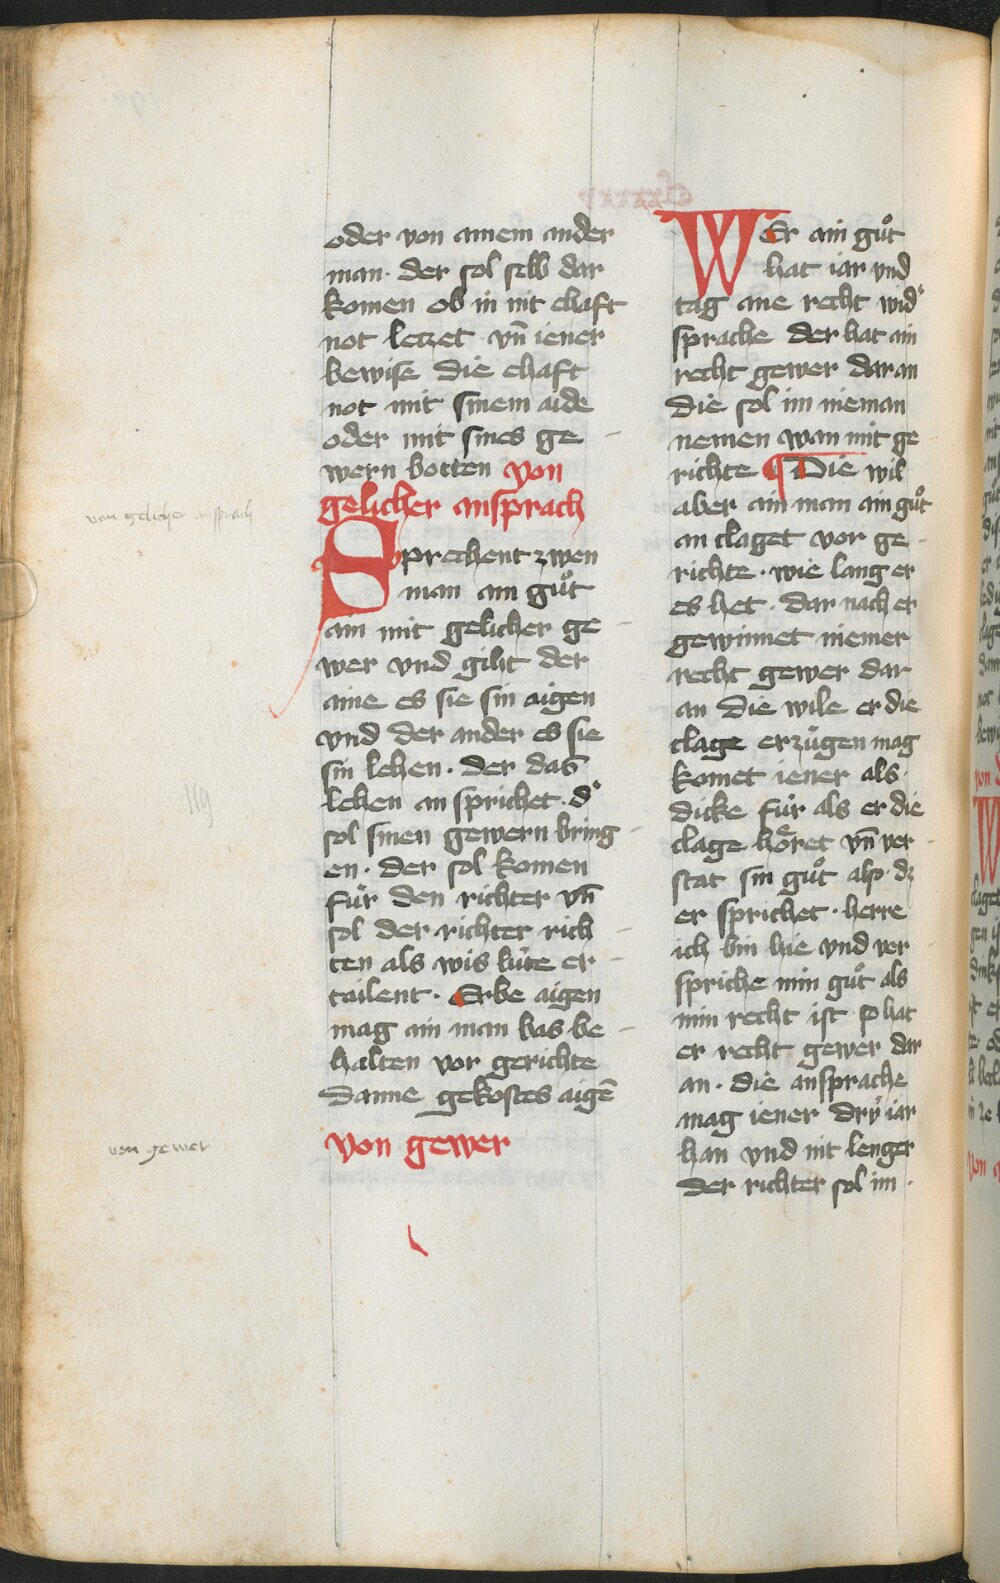 oder von ainem ander
man. der sol selb dar
komen ob in nit ehaft
not leczet vn̄ iener
bewise die ehaft
not mit sinem aide
oder mit sines ge
wern botten von
gelicher ansprach
Sprechent zwen
man ain guͦt
ain mit gelicher ge
wer vnd giht der
aine es sie sin aigen
vnd der ander es sie
sin lehen. der das
lehen an sprichet. d'
sol sinen gewern bring
en. der sol komen
fuͤr den richter vn̄
sol der richter rich
ten als wis luͤte er
tailent. Erbe aigen
mag ain man bas be
halten vor gerichte
danne gekoftes aigē
von gewer
von gelicher ansprach
von gewer
WEr ain guͦt
hat iar vnd
tag ane recht wid'
sprache der hat ain
recht gewer dar an
die sol im nieman
nemen wan mit ge
richte ¶ Die wil
aber ain man ain guͦt
an claget vor ge
richte. wie lang er
es het. dar nach er
gewinnet niemer
recht gewer dar
an die wile er die
clage erzuͤgen mag
komet iener als
dicke fuͤr als er die
clage hoͤret vn̄ ver
stat sin guͦt also. dz
er sprichet. herre
ich bin hie vnd ver
spriche min guͦt als
min recht ist so hat
er recht gewer dar
an. die ansprache
mag iener dry iar
han vnd nit lenger
der richter sol im.